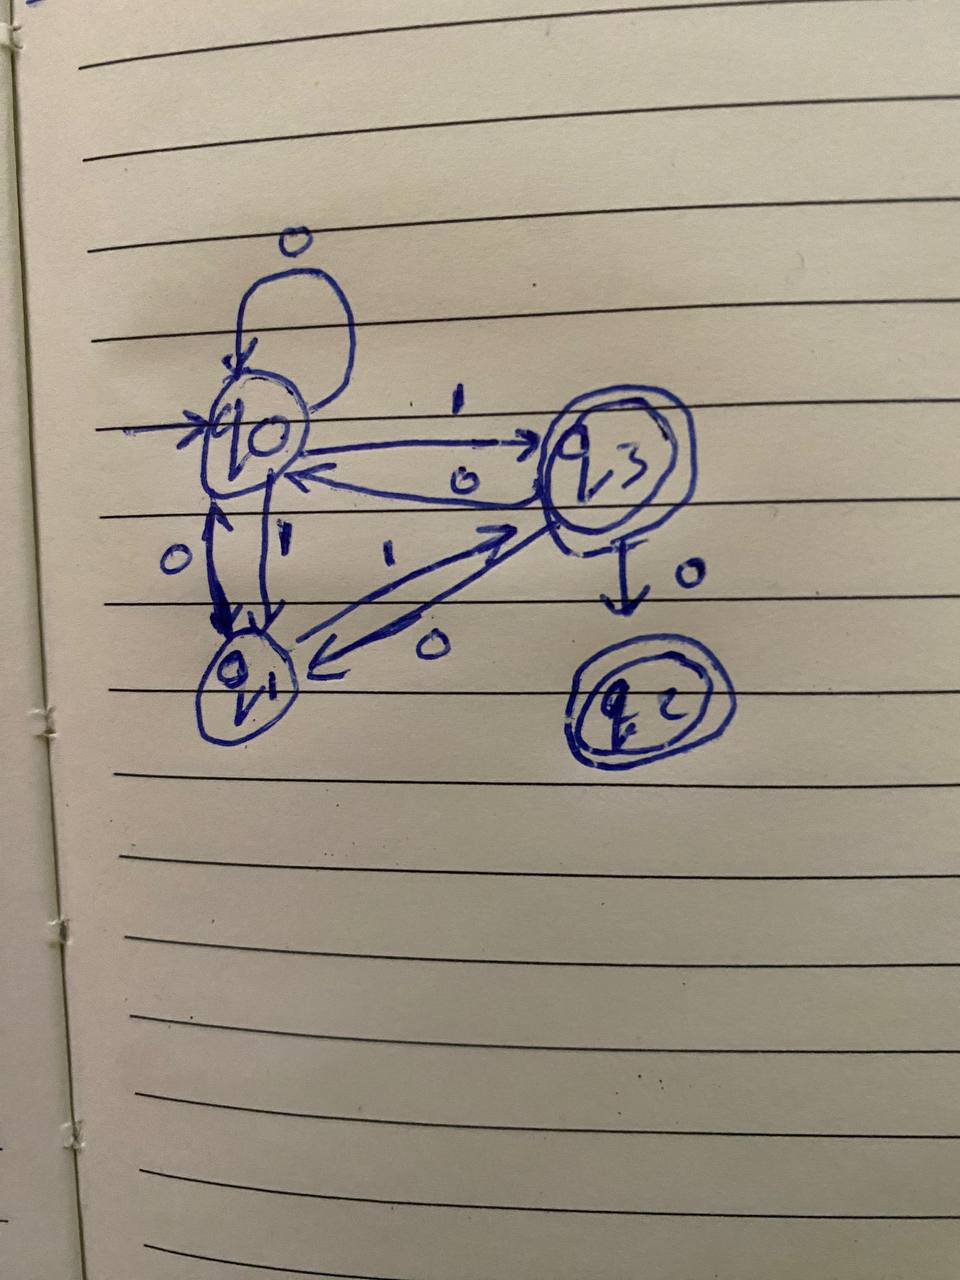 0
q0
1
q3
0
0
1
1
0
0
q1
q2